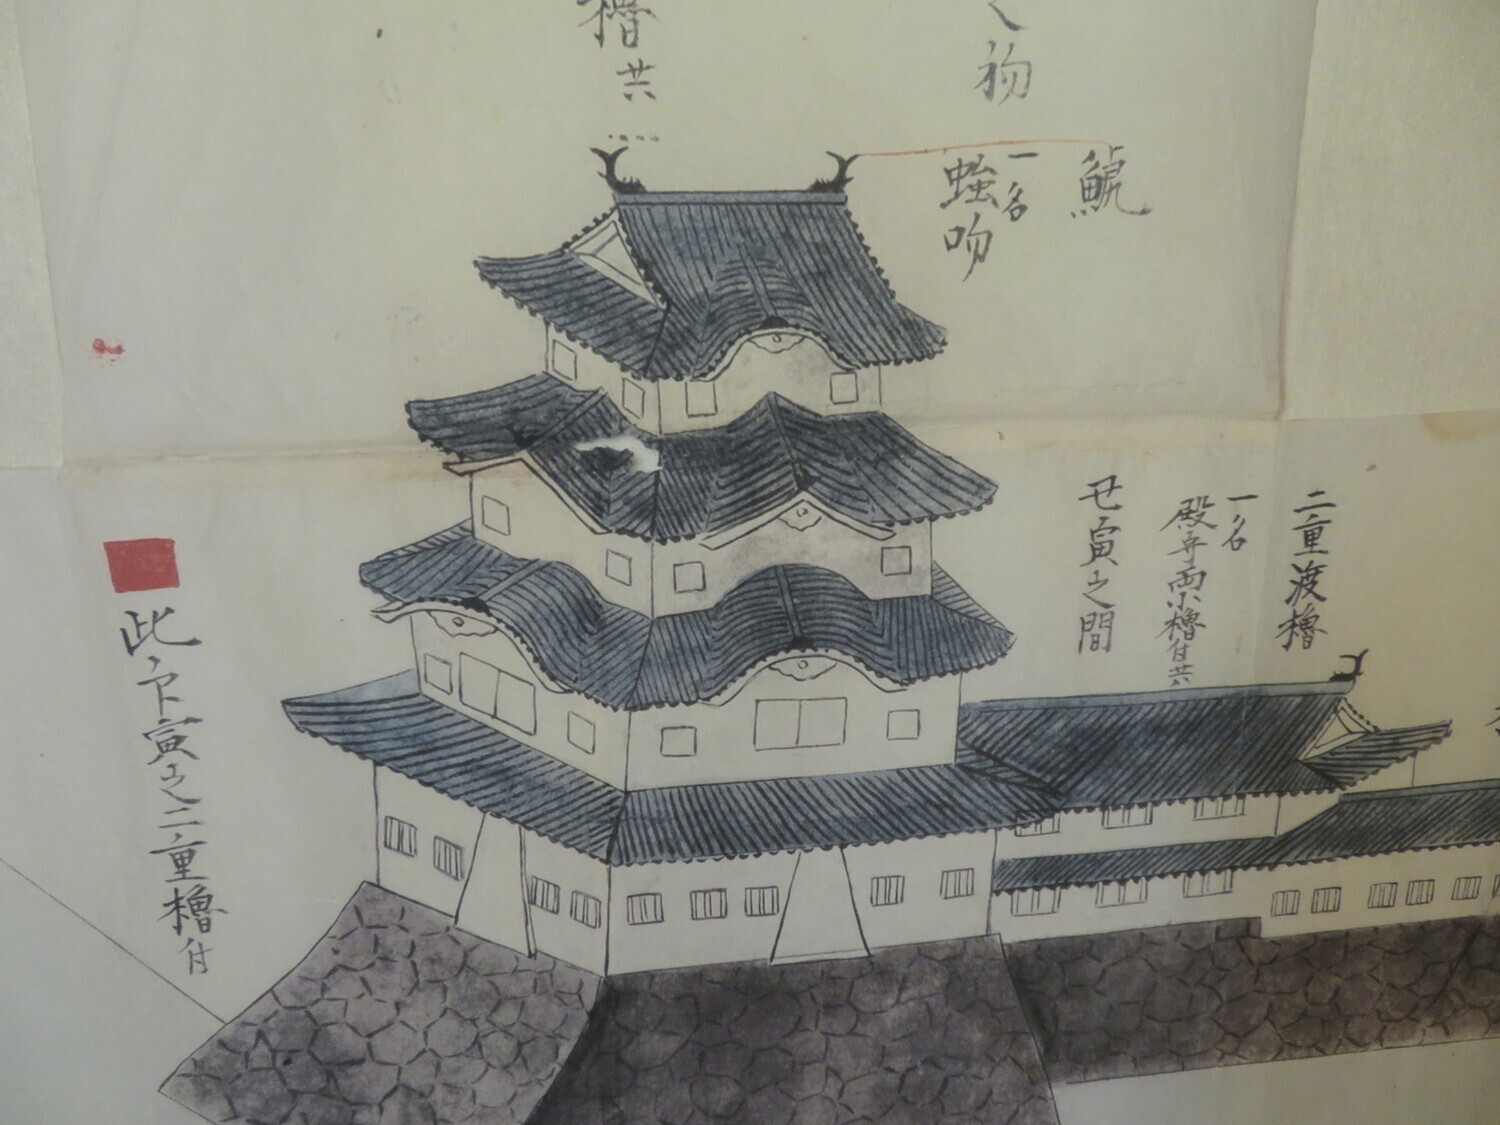 之物
鯱
一名
蚩吻
櫓共
二重渡櫓
一名
殿守両小櫓付共
丑寅之間
此所寅之二重櫓付